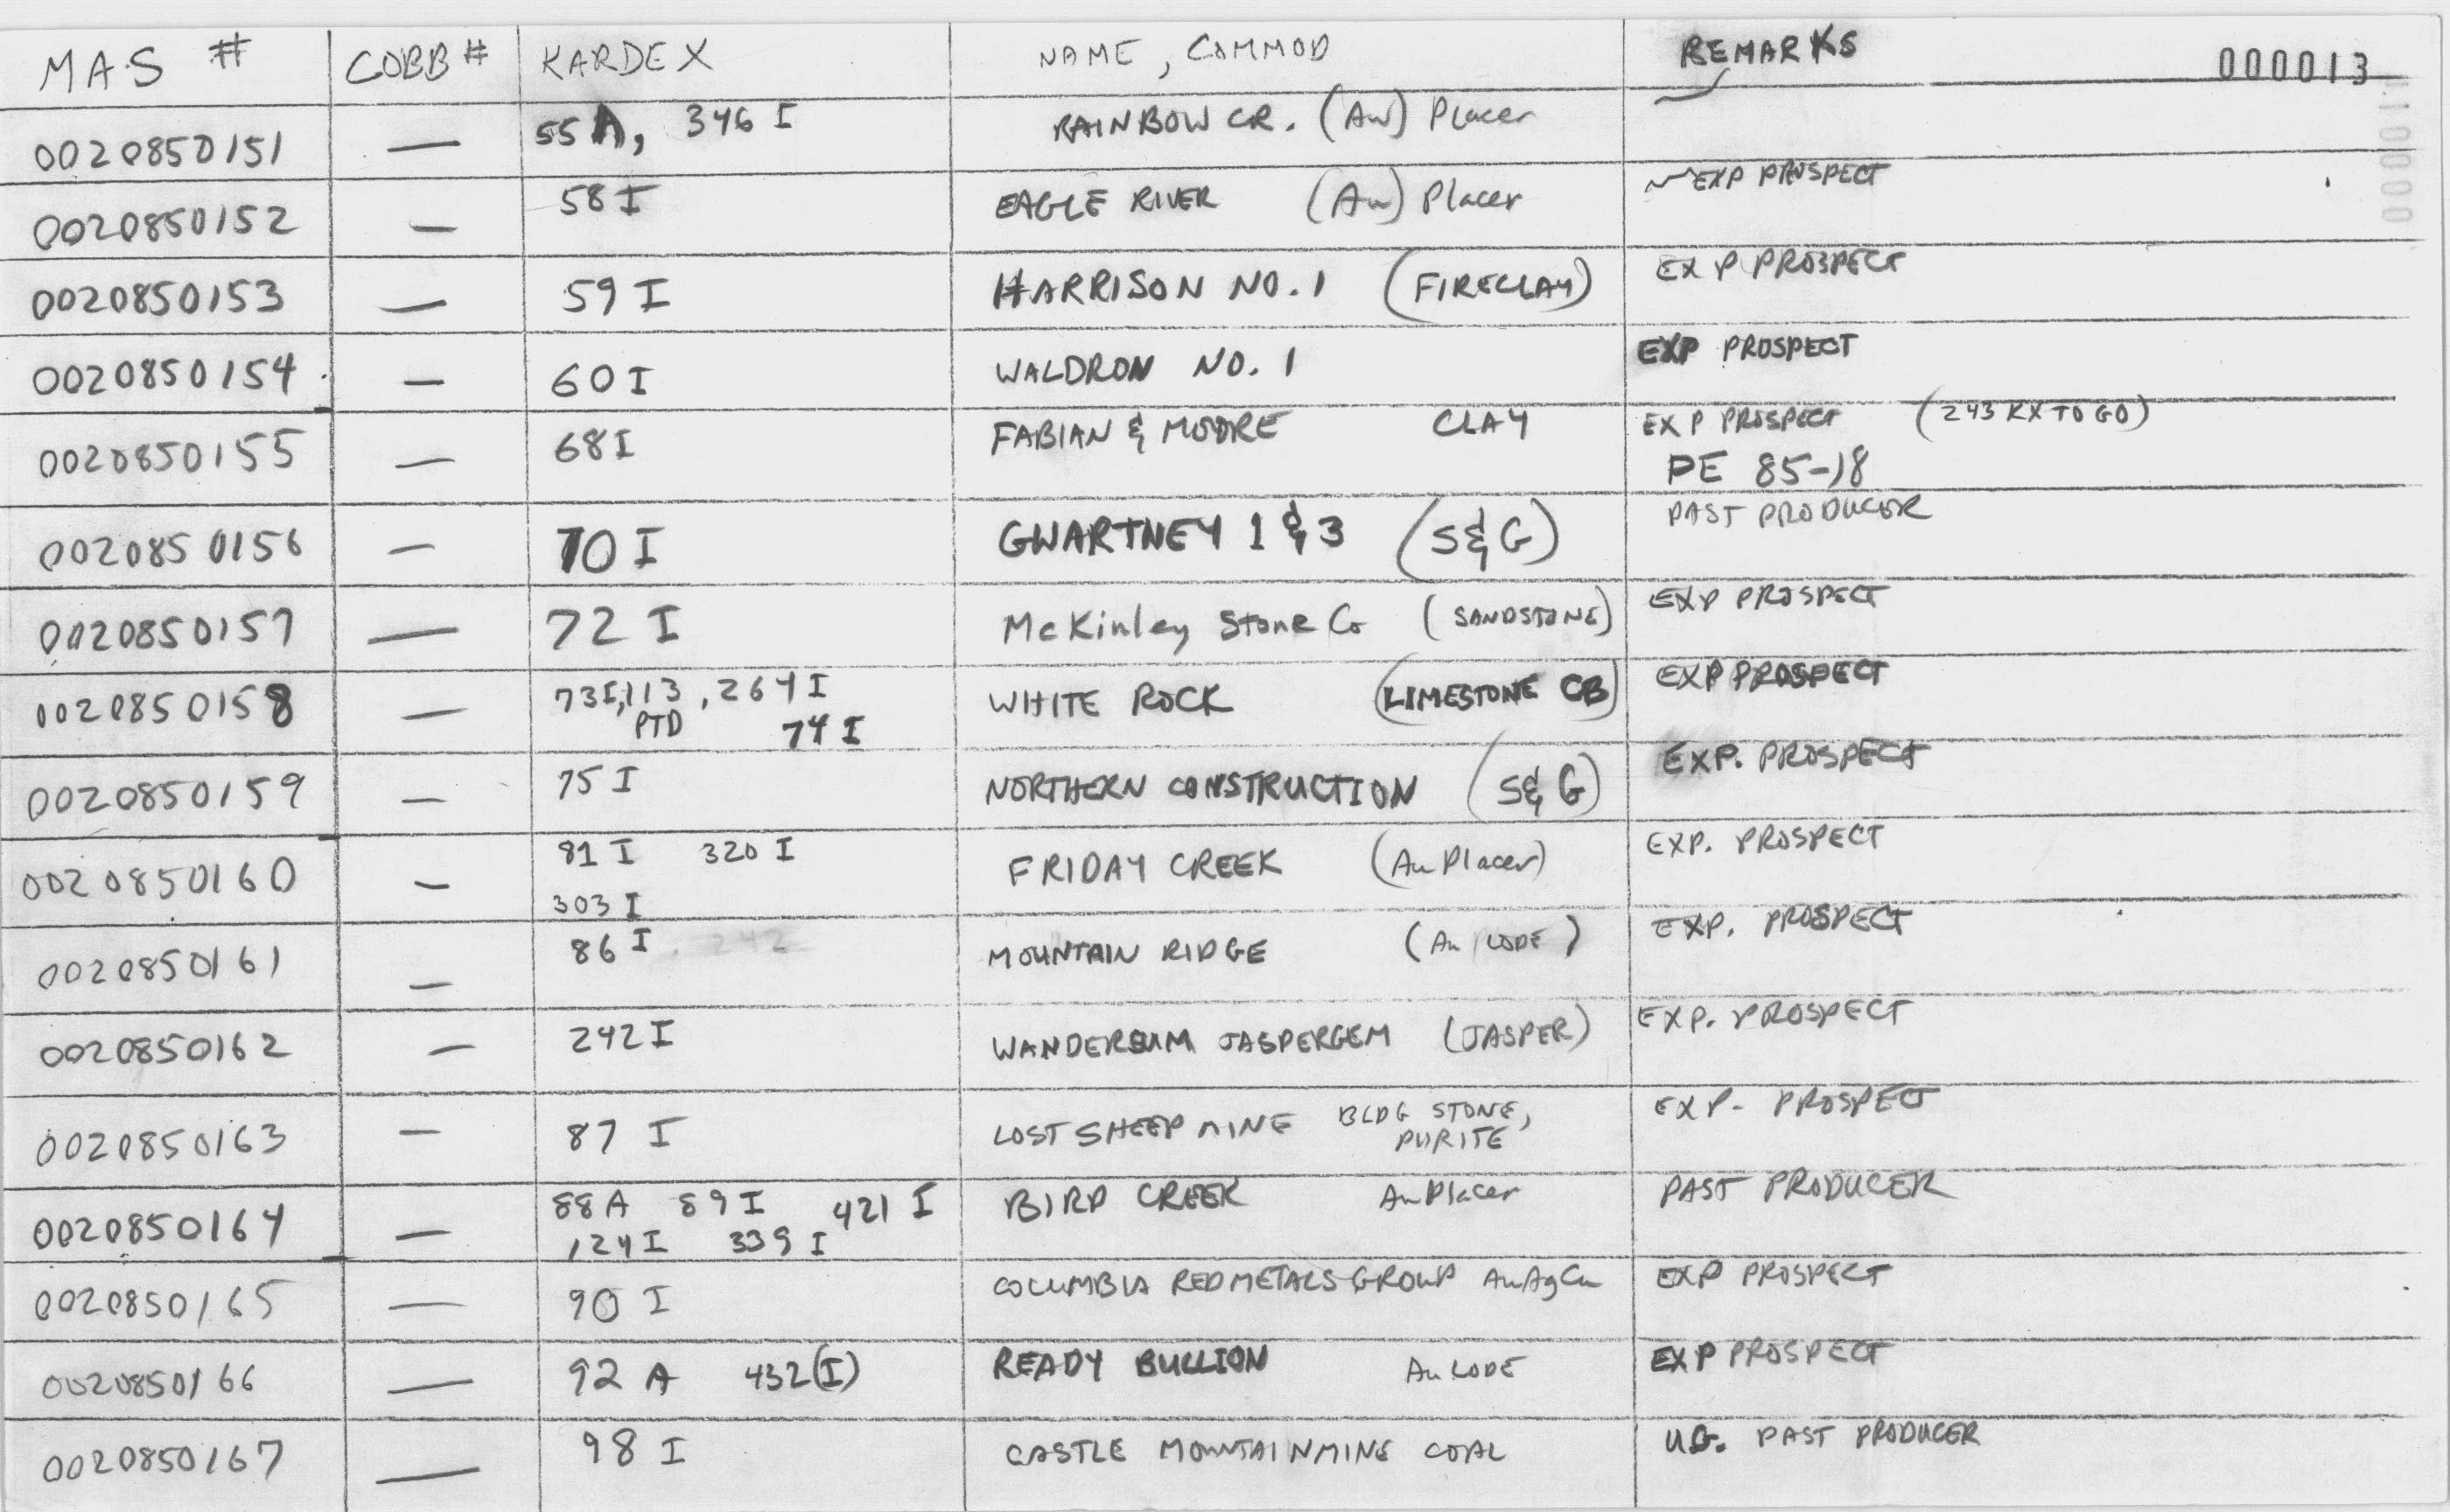 MAS # COBB # KARDEX NAME, COMMOD REMARKS 000013
0020850151 — 55A, 346 I RAINBOW CR. (Au) Placer
0020850152 — 58 I EAGLE RIVER (Au) Placer EXP PROSPECT
0020850153 — 59 I HARRISON NO. 1 (FIRECLAY) EXP PROSPECT
0020850154 — 60 I WALDRON NO. 1 EXP PROSPECT
0020850155 — 68 I FABIAN & MOORE CLAY EXP PROSPECT (243 KX TO GO)
PE 85-18
0020850156 — 70 I GWARTNEY 1 & 3 (S&G) PAST PRODUCER
0020850157 — 72 I McKinley Stone Co (SANDSTONE) EXP PROSPECT
0020850158 — 73I, 113, 264 I WHITE ROCK (LIMESTONE CB) EXP PROSPECT
PTD 74 I
0020850159 — 75 I NORTHERN CONSTRUCTION (S&G) EXP. PROSPECT
0020850160 — 81 I 320 I FRIDAY CREEK (Au Placer) EXP. PROSPECT
303 I
0020850161 — 86 I, 242 MOUNTAIN RIDGE (Au LODE) EXP. PROSPECT
0020850162 — 242 I JASPERGEM (JASPER) EXP. PROSPECT
0020850163 — 87 I LOST SHEEP MINE BLDG STONE, EXP- PROSPECT
PYRITE
0020850164 — 88A 89 I 421 I BIRD CREEK Au Placer PAST PRODUCER
124 I 339 I
0020850165 — 90 I COLUMBIA RED METALS GROUP AuAgCu EXP PROSPECT
0020850166 — 92 A 432(I) READY BULLION Au LODE EXP PROSPECT
0020850167 — 98 I CASTLE MOUNTAIN MINE COAL U.G. PAST PRODUCER